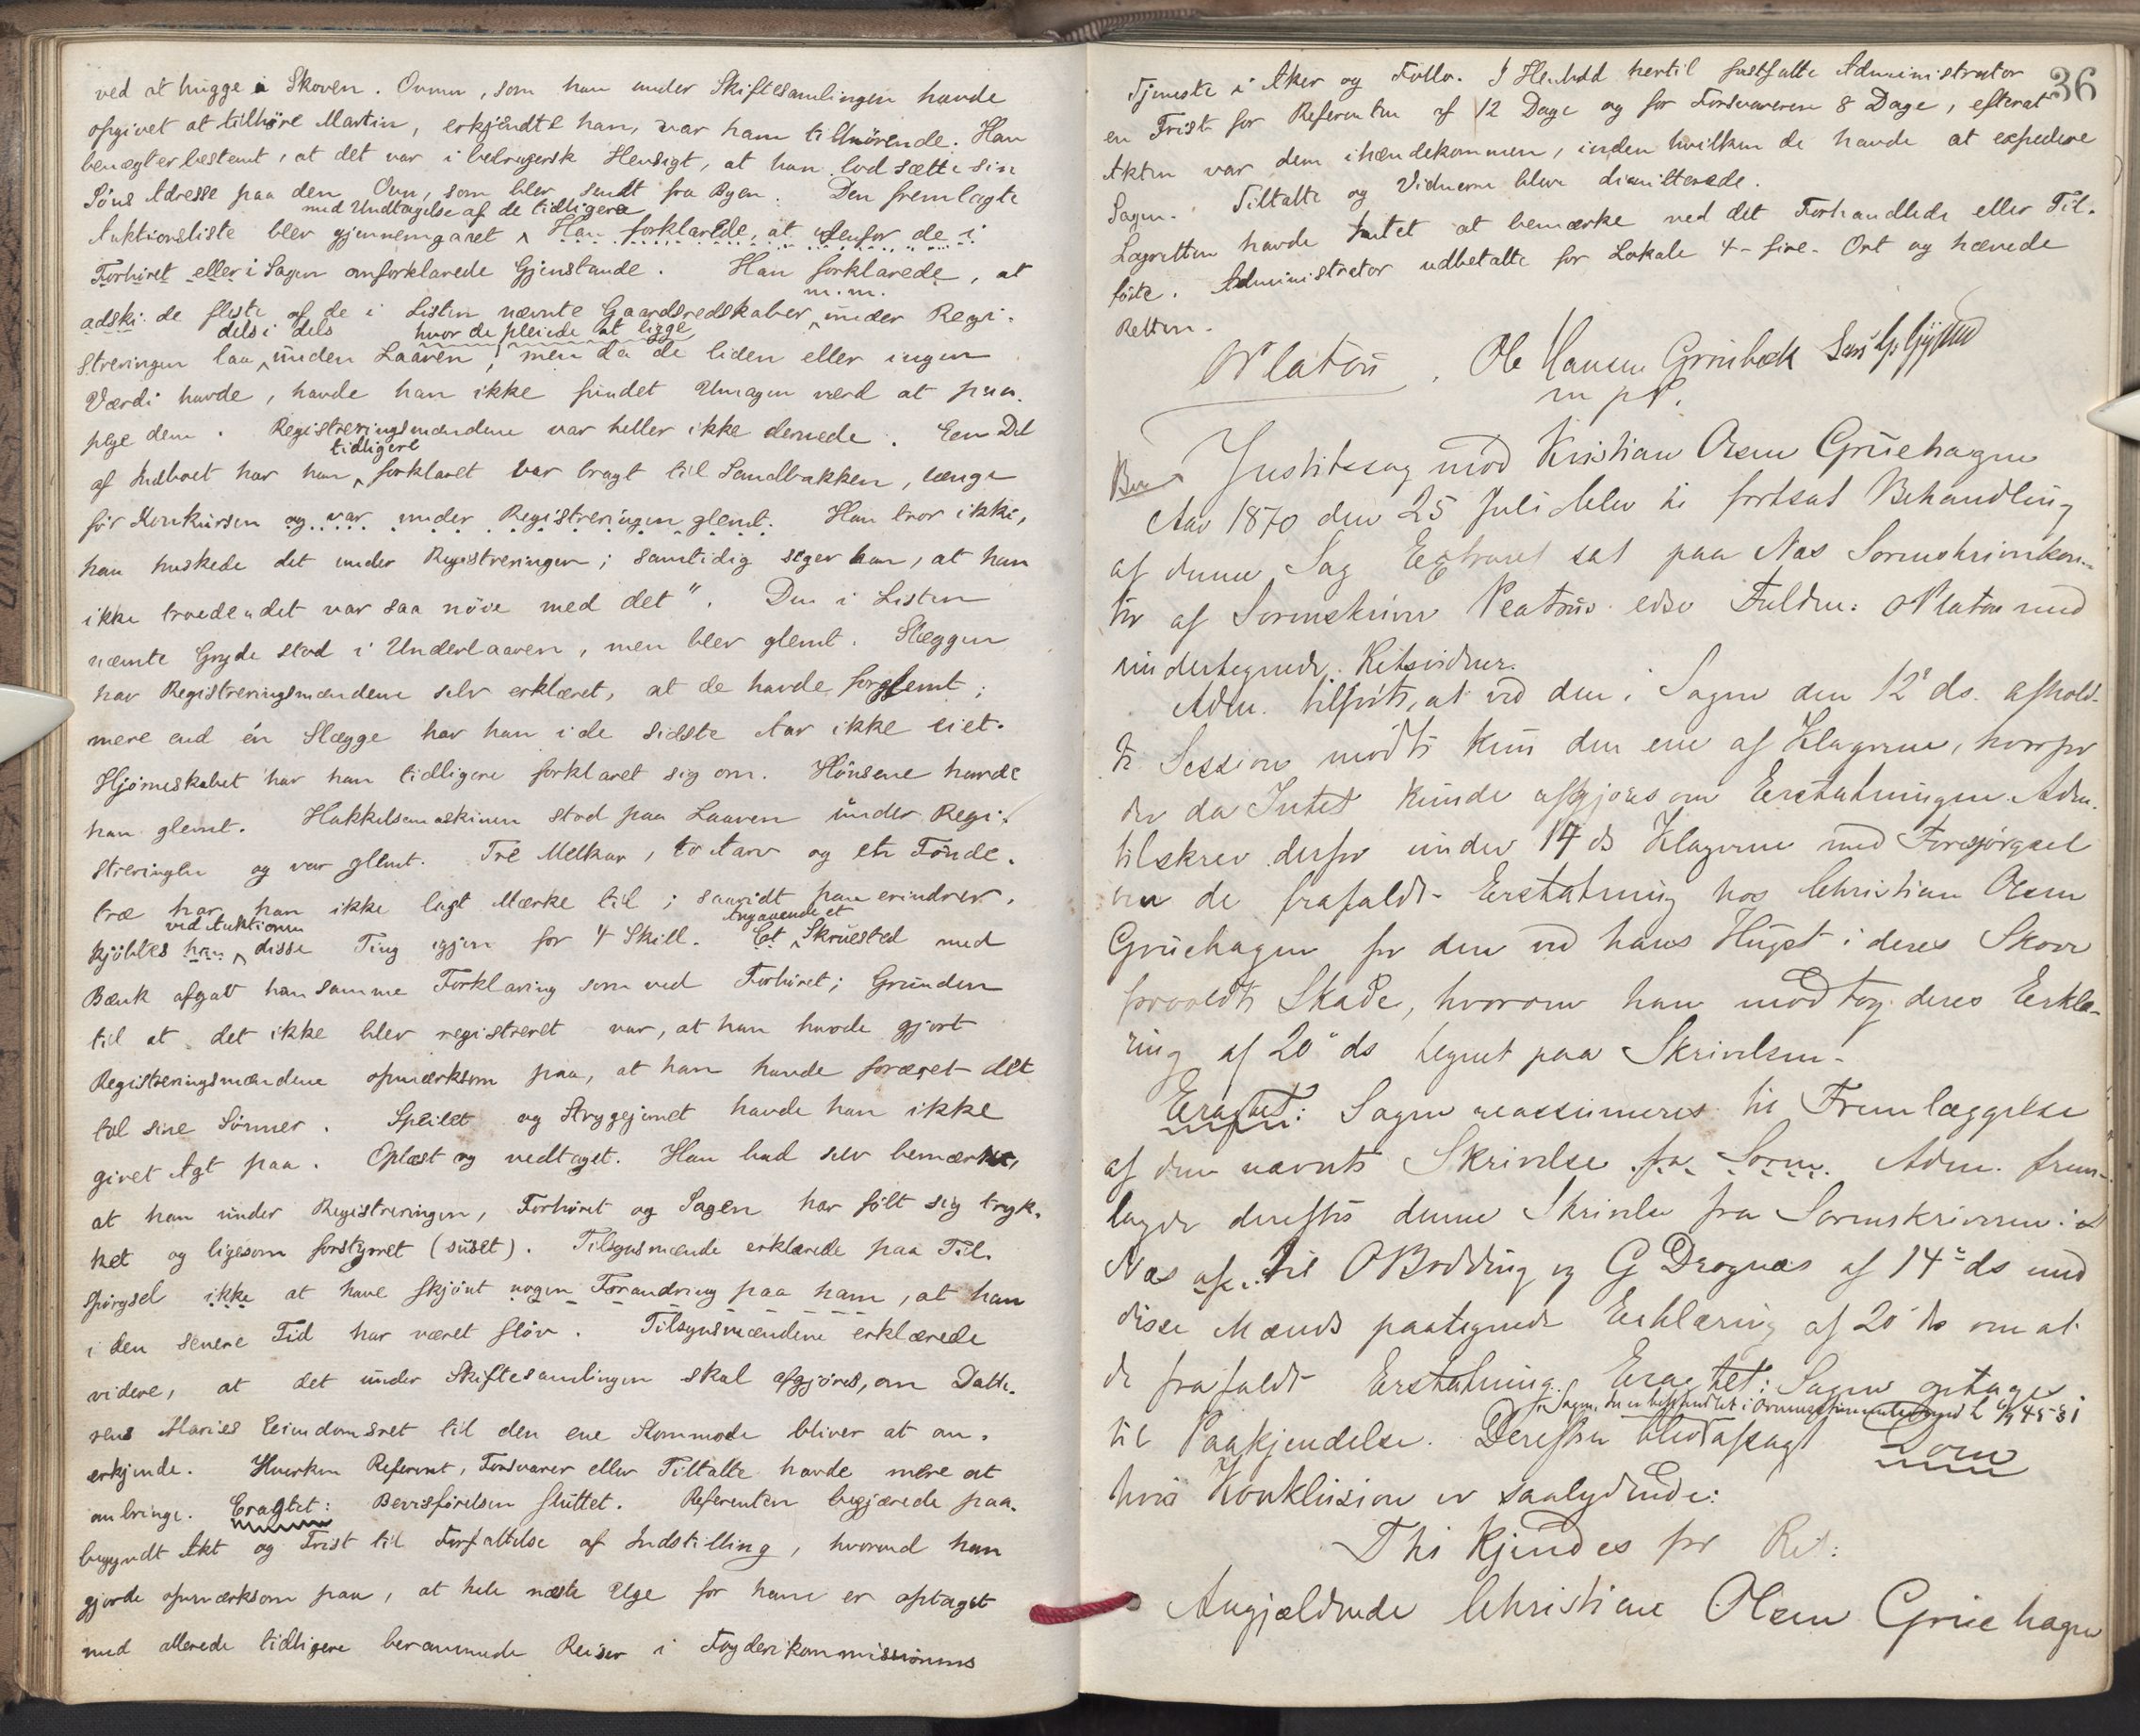 ved at hugge i Skoven. Ovnen, som han under Skiftesamlingen havde
opgivet at tilhøre Martin, erkjendte han, var ham tilhørende. Han
benægter bestemt, at det var i bedragersk Hensigt, at han lod sætte sin
Søns Adresse paa den Ovn, som blev sendt fra Byen. Den fremlagte
med Undtagelse af de tidligere
Auktionsliste blev gjennemgaaet Han forklarede, at udenfor de i
Forhøret eller i Sagen omforklarede Gjenstande. Han forklarede, at
m.m.
adski. de fleste af de i Listen nævnte Gaardsredskaber under Regi-
dels i dels hvor de pleiede at ligge
streringen laa under Laaven, men da de liden eller ingen
Værdi havde, havde han ikke fundet Umagen værd at paa-
pege dem. Registreringsmændene var heller ikke dernede. Een Del
tidligere
af Indboet har han forklaret var bragt til Sandbakken, længe
før Konkursen og var under Registreringen glemt. Han tror ikke,
han huskede det under Registreringen; samtidig siger han, at han
ikke troede "det var saa nøie med det". Den i Listen
nævnte Gryde stod i Underlaaven, men blev glemt. Slæggen
har Registreringsmændene selv erklæret, at de havde forglemt;
mere end én Slægge har han i de sidste Aar ikke eiet.
Hjørneskabet har han tidligere forklaret sig om. Hønsene havde
han glemt. Hakkelsemaskinen stod paa Laaven under Regi-
streringen og var glemt. Tre Melkar, to Aarv og et Tønde-
træ har han ikke lagt Mærke til; saavidt han erindrer,
ved Auktionen Angaaende et
kjøbtes han disse Ting igjen for 4 Skill. Et Skruested med
Bænk afgav han samme Forklaring som ved Forhøret; Grunden
til at det ikke blev registreret var, at han havde gjort
Registreringsmændene opmærksom paa, at han havde foræret det
til sine Sønner. Speilet og Strygejernet havde han ikke
givet Agt paa. Oplæst og vedtaget. Han bad selv bemærket,
at han under Registreringen, Forhøret og Sagen har følt sig tryk-
ket og ligesom forstyrret (suset). Tilsynsmændene erklærede paa Til-
spørgsel ikke at have skjønt nogen Forandring paa ham, at han
i den senere Tid har været sløv. Tilsynsmændene erklærede
videre, at det under Skiftesamlingen skal afgjøres, om Datte-
rens Maries Eiendomsret til den ene Kommode bliver at an-
erkjende. Hverken Referent, Forsvarer eller Tiltalte havde mere at
anbringe. Eragtet: Bevisførelsen sluttet. Referenten begjærede paa-
begyndt Akt og Frist til Forfattelse af Indstilling, hvorved han
gjorde opmærksom paa, at hele næste Uge for ham er optaget
med allerede tidligere berammede Reiser i Fogderikommissionens
36
Tjeneste i Aker og Follo. I Henhold hertil fastsatte Administrator
en Frist for Referenten af 12 Dage og for Forsvareren 8 Dage, efterat
Akten var dem ihændekommen, inden hvilken de havde at expedere
Sagen. Tiltalte og Vidnerne bleve dimitterede.
Lagretten havde Intet at bemærke ved det Forhandlede eller Til-
førte. Administrator udbetalte for Lokale 4 - fire - Ort og hævede
Retten.
OPlatou. Ole Hansen Grinbæk
m p P.
Justitssag mod Kristian Olsen Gruehagen
Aar 1870 den 25 Juli blev til fortsat Behandling
af denne Sag Extraret sat paa Næs Sorenskriverkon-
tor af Sorenskriver edsv Fuldm: OPlatou med
undertegnede Retsvidner.
Adm. tilførte, at ved den i Sagen den 12te ds. afhold-
te Session mødte kun den ene af Klagerne, hvorfor
der da Intet kunde afgjøres om Erstatningen. Adm.
tilskrev derfor under 14 ds Klagerne med Forespørgsel
om de frafaldt Erstatning hos Christian Olsen
Gruehagen for den ved hans Hugst i deres Skove
forvoldte Skade, hvorom han modtog deres Erklæ-
ring af 20de ds tegnet paa Skrivelsen.
Eragtet: Sagen reassumeres til Fremlæggelse
af den nævnte Skrivelse fra Sorn. Adm. frem-
lagde derefter denne Skrivelse fra Sorenskriveren i
Næs af til OBodding og G Dragnæs af 14de ds med
disse Mænds paategnede Erklæring af 20 ds om at
de frafaldt Erstatning. Eragtet: Sagen optages
til Paakjendelse. Derefter blev afsagt Dom
hvis Konklusion er saalydende:
Thi kjendes for Ret:
Angjældende Christian Olsen Gruehagen